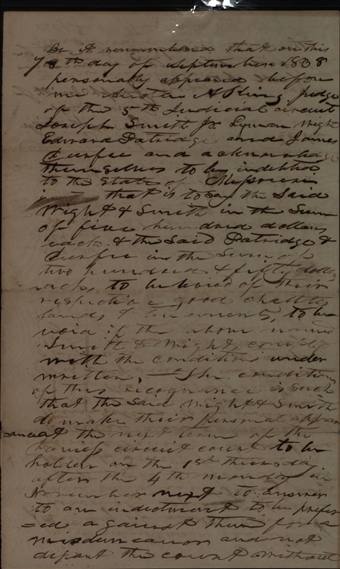 Be it remembered that on this
7th day of September 1838
personally appeared before
me Austin A King judge
of the 5th Judicial circuit
Joseph Smith Jr Lyman Wight
Edward Patridge and James
Durfee and acknowledge
themselves to be indebted
to the State of Missouri
that is to say the Said
Wight & Smith in the Sum
of five hundred dollars
each & the Said Patridge &
Durfee in the Sum of
two hundred & fifty dollars
each, to be levied of their
respective good chattles
lands & tenements, to be
void if the above named
Smith & Wight comply
with the conditions under
written, The condition
of this recognizance is such
that the Said Wight & Smith
do make their personal appear
ance at the next term of the
Daviess circuit court to be
holden on the 1st thursday
after the 4th monday in
November next to answer
to an indictment to be prefer
=ed against them for a
misdemeanor and not
depart the court without